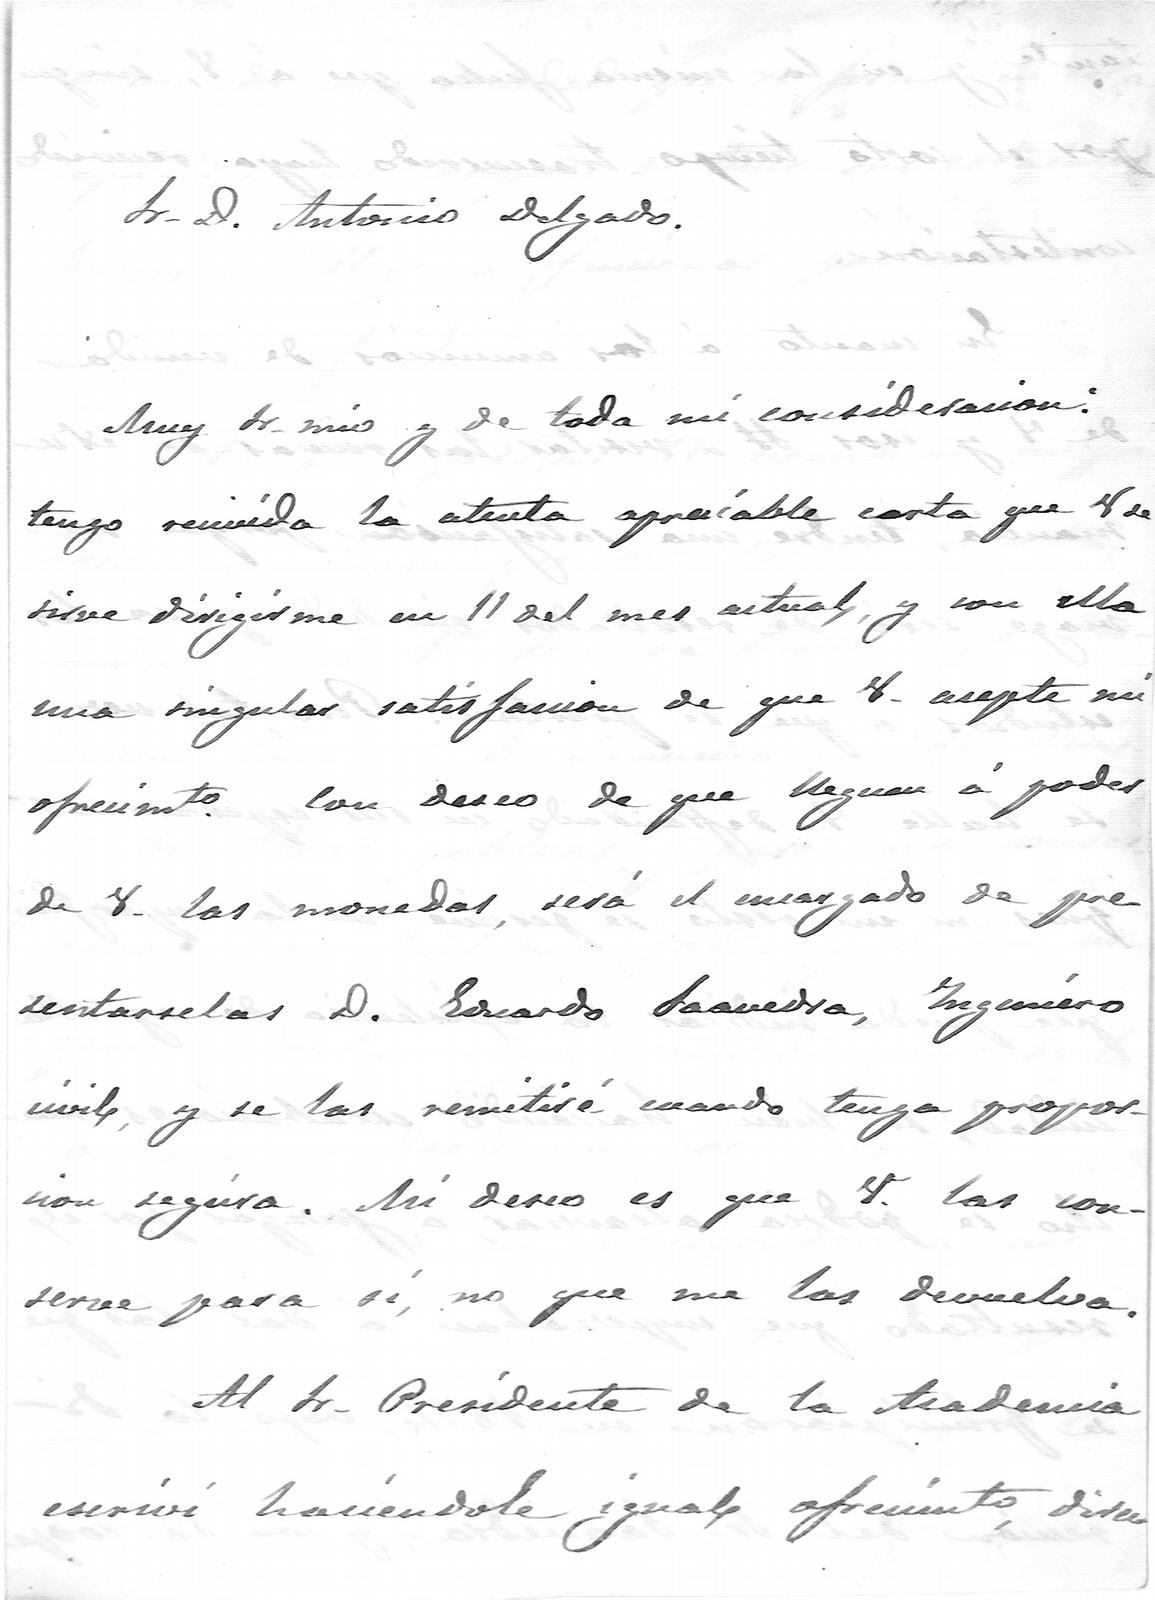 Sr. D. Antonio Delgado.
Muy Sr. mio y de toda mi consideracion:
tengo recivida la atenta apreciable carta que V. se
sirve dirigirme en 11 del mes actual, y con ella
una singular satisfaccion de que V. acepte mi
ofrecimto. Con deseo de que lleguen á poder
de V. las monedas, será el encargado de pre-
sentarselas D. Eduardo Saavedra, Ingeniero
civil, y se las remitiré cuando tenga propor-
cion segura. Mi deseo es que V. las con-
serve para sí, no que me las devuelva.
Al Sr. Presidente de la Academia
escriví haciendole igual ofrecimto,